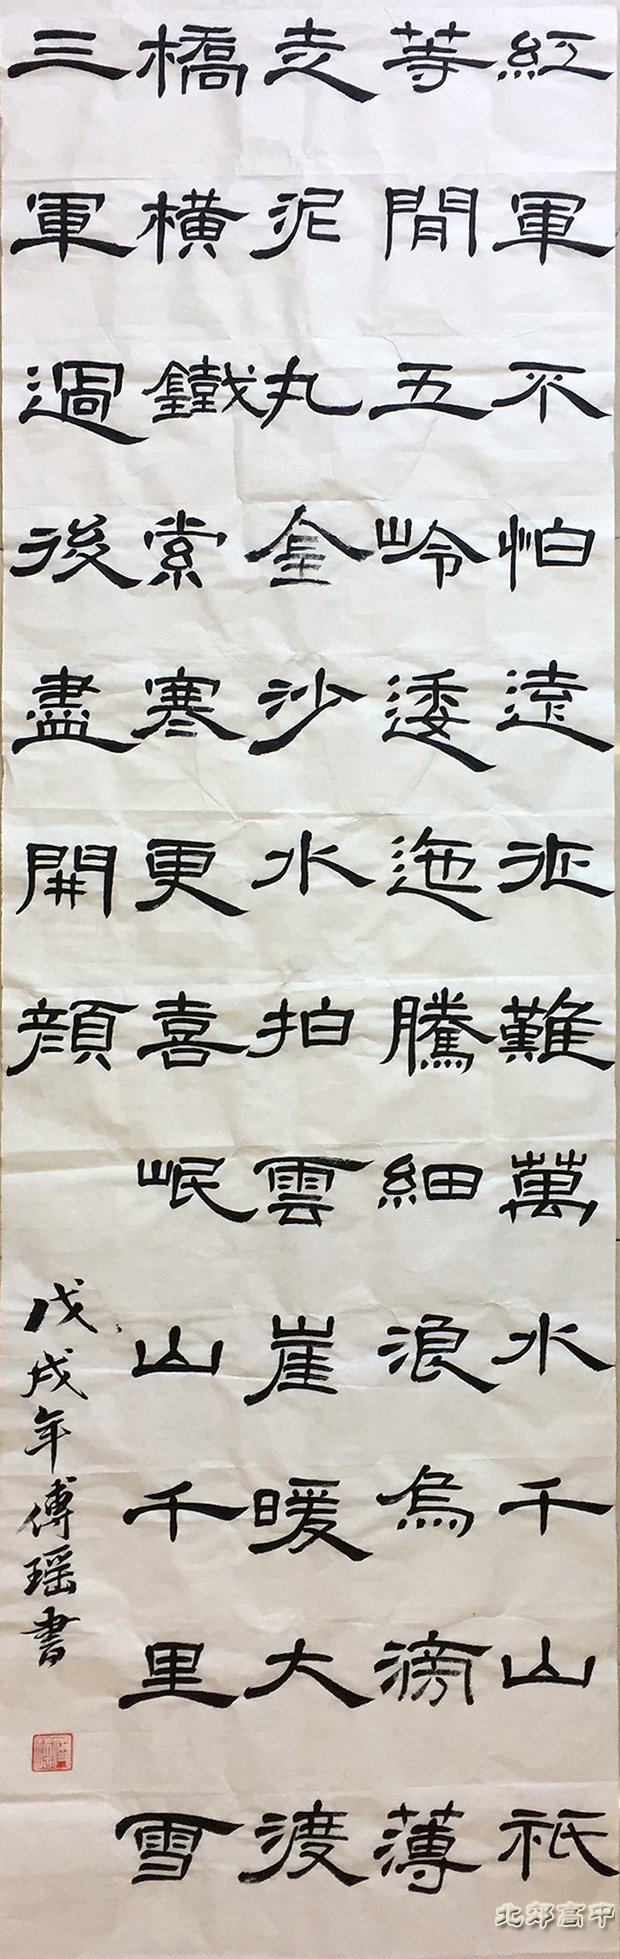 紅軍不怕遠征難萬水千山祇
等閒五岭逶迤騰細浪烏滂薄
走泥丸金沙水拍雲崖暖大渡
橋橫鐵索寒更喜岷山千里雪
三軍過後盡開顏
戊戌年傅瑶書
北郊高中